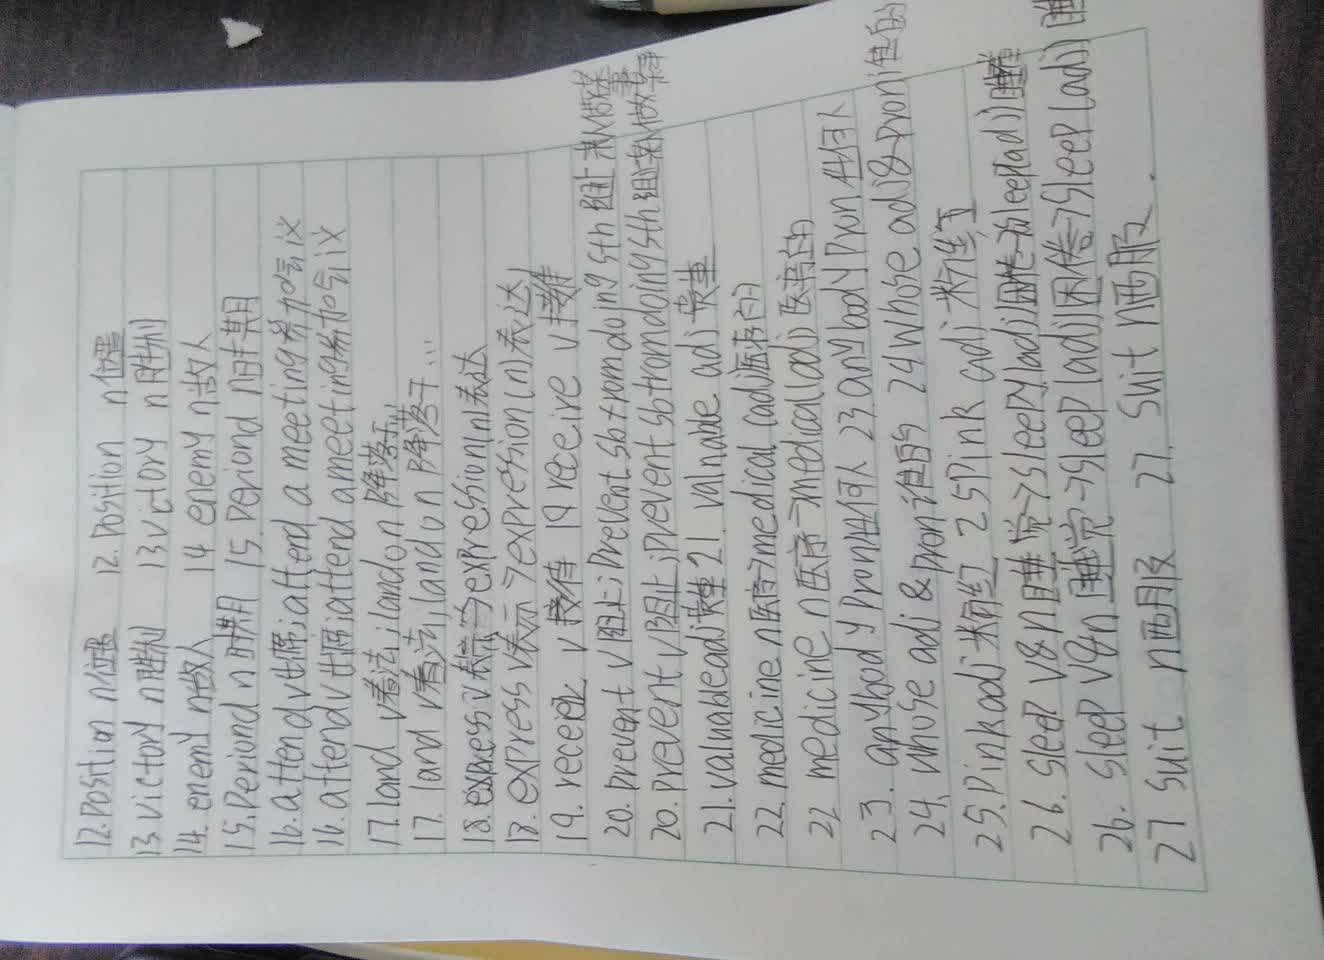 12.Position n位置 12.Position n位置
13 victory n胜利 13 victory n胜利
14. enemy n敌人 14 enemy n敌人
15.Periond n时期 15.Periond n时期
16.attend v出席;attend a meeting参加会议
16.attend v出席;attend a meeting参加会议
17.land v着法;land on 降落于…
17. land v着法;land on 降落于…
18.express v表示→expression(n)表达
18.express v表示→expression(n)表达
19.receive v 接待 19 receive v 接难
20.prevent v 阻止;prevent sb from doing sth 阻止某人做某事
20.prevent v 阻止;prevent sb from doing sth 阻止某人做某事
21.valnableadj贵重21.valnabe adj 贵重
22.medicine n医疗→medical (adj)医疗的
22 medicine n医疗→medical(adj)医疗的
23.anybody Pron任何人 23 anybody Pron 任何人
24. whose adj & pron 谁的 24 whose adj & pron 谁的
25.Pinkadj粉红 25 Pink adj 粉红
26.sleep v&n睡觉→sleepy(adj)困倦→sleep(adj)睡着
26. sleep v&n睡觉→sleep (adj)困倦→sleep (adj)
27 suit n西服 27. Suit n西服.